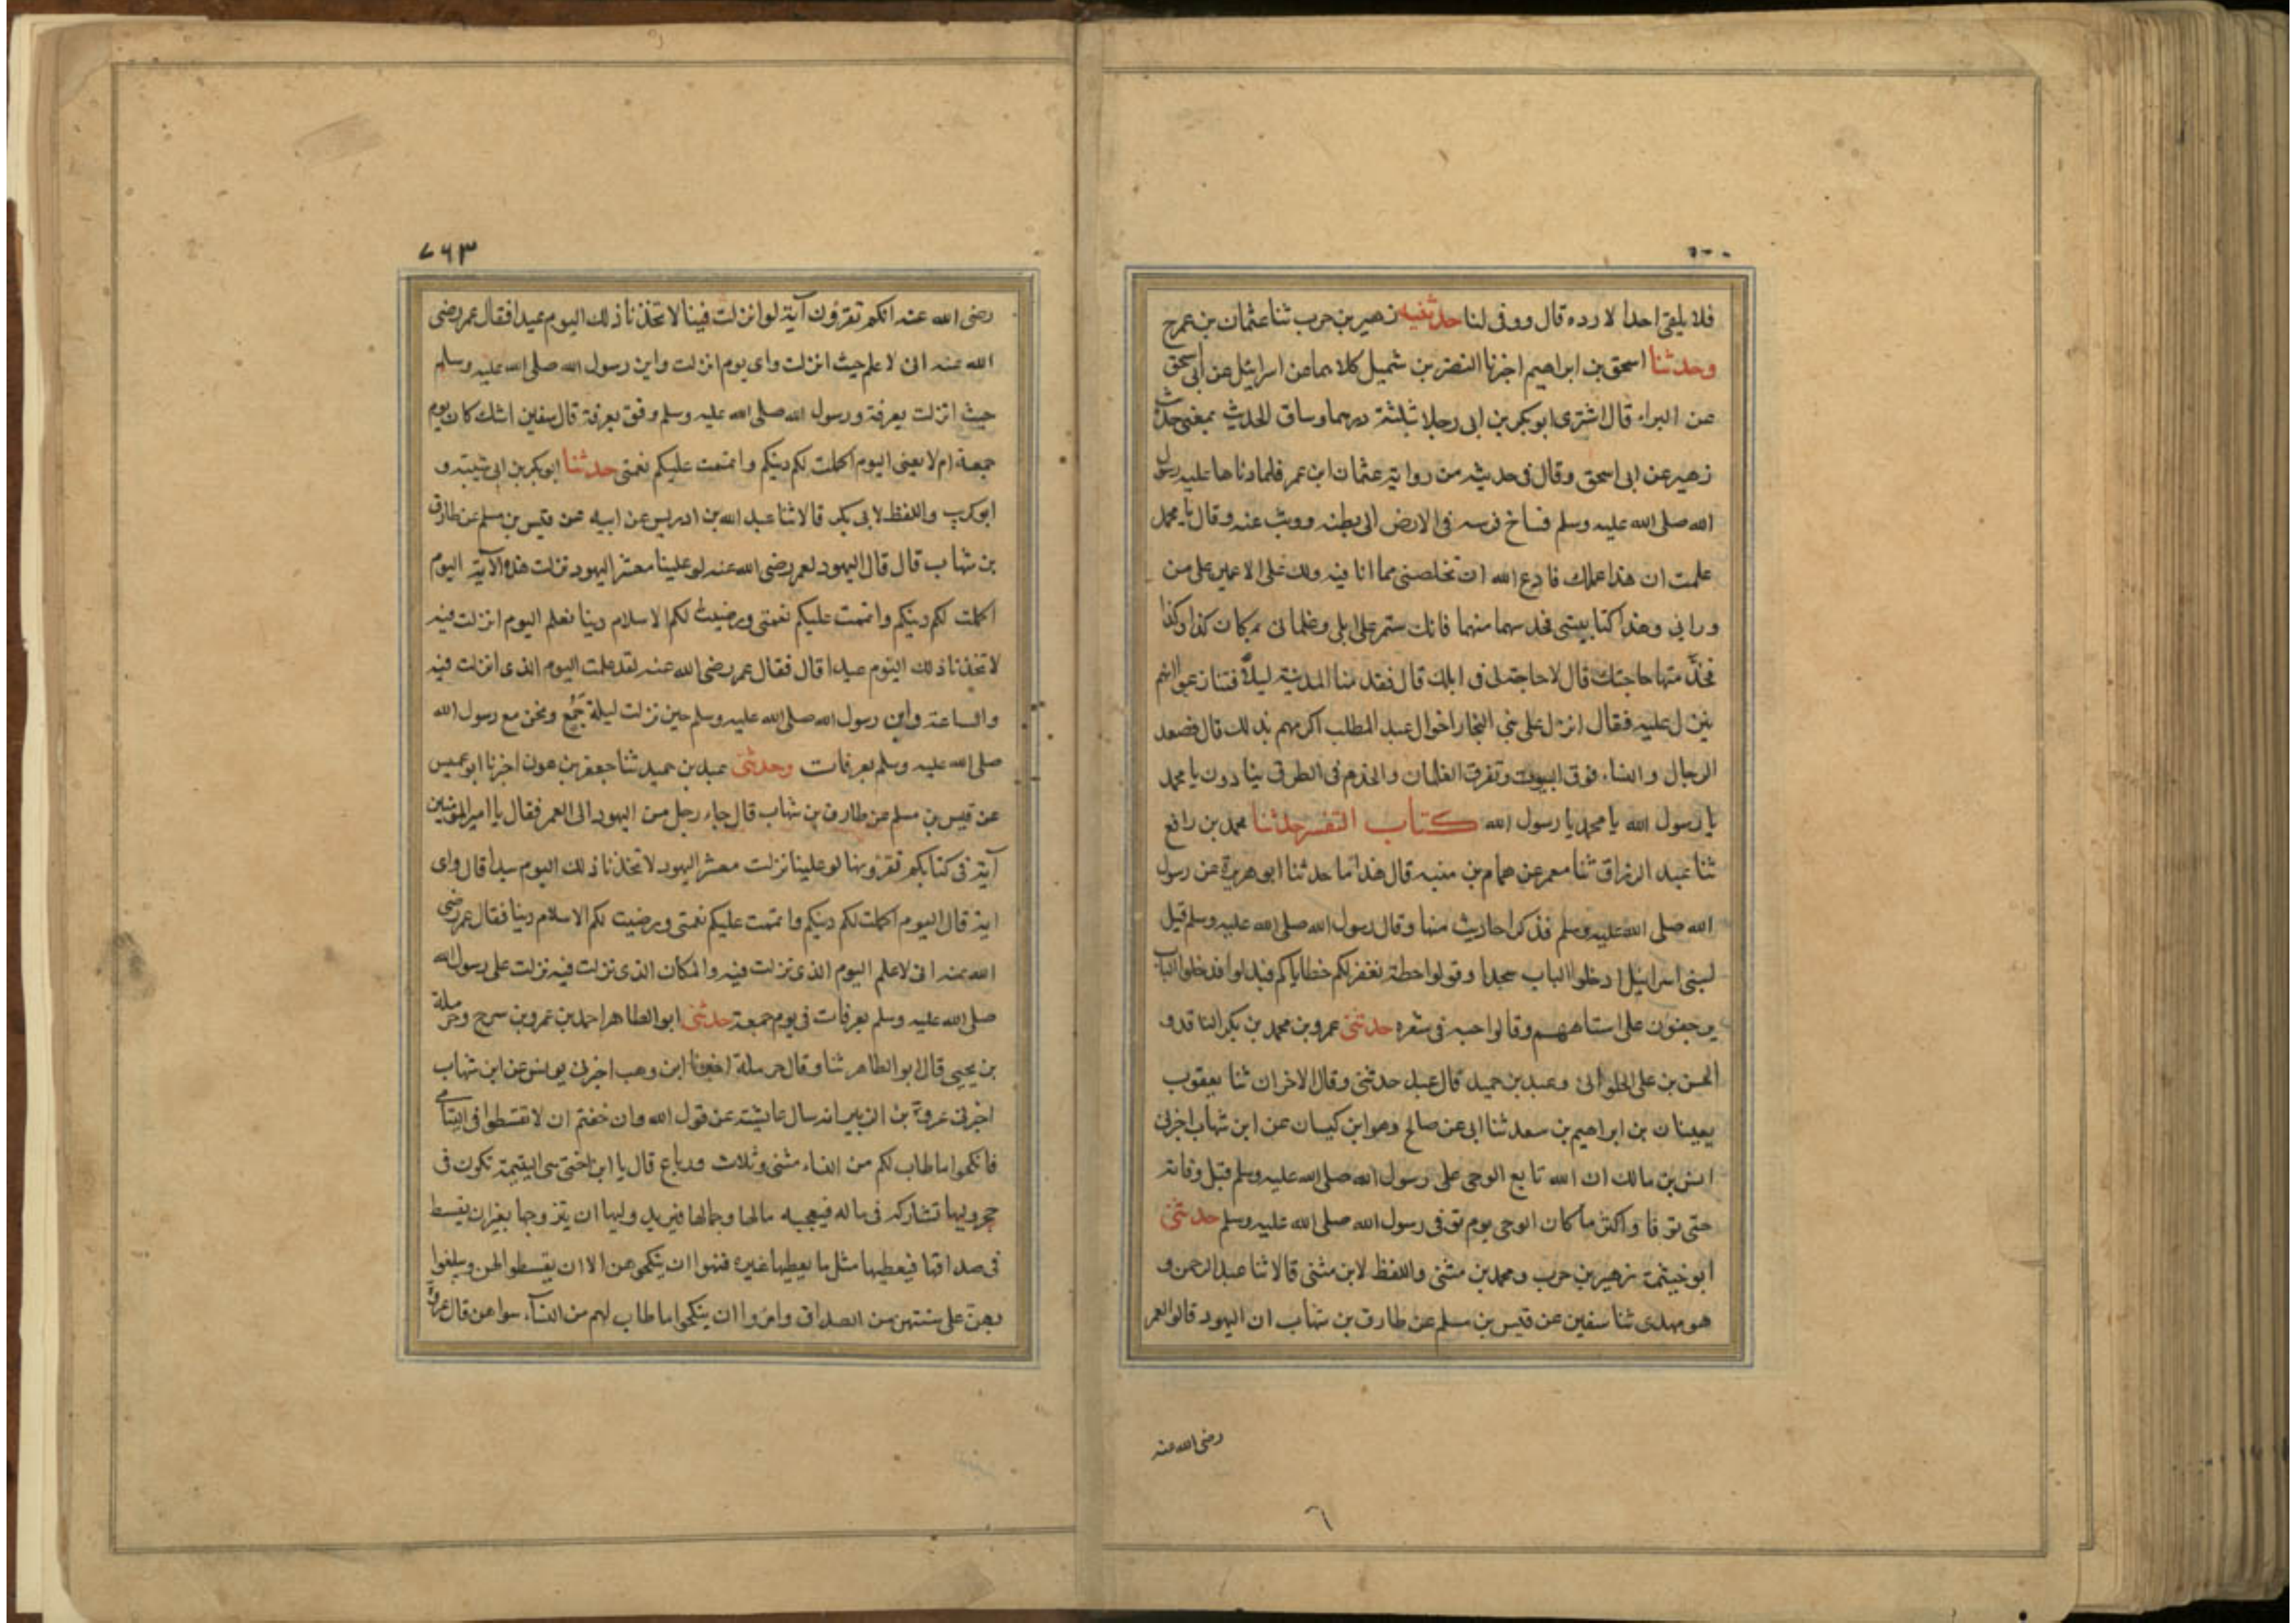 فلا يلقى احدا لا رده قال ووفى لنا حدثنيه زهير بن حرب ثنا عثمان بن عمر ح
وحدثنا اسحق بن ابراهيم اخبرنا النضر بن شميل كلاهما عن اسرائيل عن ابى اسحق
عن البراء قال اشترى ابو بكر بن ابى رحلا بثلثة درهما وساق الحديث بمعنى حديث
زهير عن ابى اسحق وقال فى حديثه من رواية عثمان ابن عمر فلما دنا دعا عليه رسول
الله صلى الله عليه وسلم فساخ فرسه فى الارض الى بطنه ووثب عنه وقال يا محمد
علمت ان هذا عملك فادع الله ان تخلصنى مما انا فيه ولك على الاعمين على من
ورائى وهذا كنا بيتى فخذ سهما منها فانك ستمر على ابلى وغلمانى بمكان كذا وكذا
فخذ منها حاجتك قال لا حاجة لى فى ابلك قال فقدمنا المدينة ليلا فتنازعوا ايهم
ينزل عليه فقال انزل على بنى النجار اخوال عبد المطلب اكرمهم بذلك قال فصعد
الرجال والنساء فوق البيوت وتفرق الغلمان والخدم فى الطرق ينادون يا محمد
يا رسول الله يا محمد يا رسول الله كتاب التفسير حدثنا محمد بن رافع
ثنا عبد الرزاق ثنا معمر عن همام بن منبه قال هذا ما حدثنا ابو هريرة عن رسول
الله صلى الله عليه وسلم فذكر احاديث منها وقال رسول الله صلى الله عليه وسلم قيل
لبنى اسرائيل ادخلوا الباب سجدا وقولوا حطة نغفر لكم خطاياكم فبدلوا فدخلوا الباب
يزحفون على استاههم وقالوا حبه فى شعره حدثنى عمرو بن محمد بن بكر الناقد و
الحسن بن على الحلوانى وعبد بن حميد قال عبد حدثنى وقال الاخران ثنا يعقوب
يعينان بن ابراهيم بن سعد ثنا ابى عن صالح وهو ابن كيسان عن ابن شهاب اخبرنى
انس بن مالك ان الله تابع الوحى على رسول الله صلى الله عليه وسلم قبل وفاته
حتى توفا واكثر ما كان الوحى يوم توفى رسول الله صلى الله عليه وسلم حدثنى
ابو خيثمة زهير بن حرب ومحمد بن مثنى واللفظ لابن مثنى قالا ثنا عبد الرحمن و
هو مهدى ثنا سفين عن قيس بن مسلم عن طارق بن شهاب ان اليهود قالوا لعمر
رضى الله عنه
٦
٧٦٣
رضى الله عنه انكم تقرؤن آية لو انزلت فينا لاتخذنا ذلك اليوم عيدا فقال عمر رضى
الله عنه انى لاعلم حيث انزلت واى يوم انزلت واين رسول الله صلى الله عليه وسلم
حيث انزلت بعرفة ورسول الله صلى الله عليه وسلم وقف بعرفة قال سفين اشك كان يوم
جمعة ام لا يعنى اليوم اكملت لكم دينكم واتممت عليكم نعمتى حدثنا ابو بكر بن ابى شيبة و
ابو كريب واللفظ لابى بكر قالا ثنا عبد الله بن ادريس عن ابيه عن قيس بن مسلم عن طارق
بن شهاب قال قال اليهود لعمر رضى الله عنه لو علينا معشر اليهود نزلت هذه الآية اليوم
اكملت لكم دينكم واتممت عليكم نعمتى ورضيت لكم الاسلام دينا نعلم اليوم انزلت فيه
لاتخذنا ذلك اليوم عيدا قال فقال عمر رضى الله عنه لقد علمت اليوم الذى انزلت فيه
والساعة واين رسول الله صلى الله عليه وسلم حين نزلت ليلة جمع ونحن مع رسول الله
صلى الله عليه وسلم بعرفات وحدثنى عبد بن حميد ثنا جعفر بن عون اخبرنا ابو عميس
عن قيس بن مسلم عن طارق بن شهاب قال جاء رجل من اليهود الى العمر فقال يا امير المؤمنين
آية فى كتابكم تقرؤنها لو علينا نزلت معشر اليهود لاتخذنا ذلك اليوم عيدا قال واى
اية قال اليوم اكملت لكم دينكم واتممت عليكم نعمتى ورضيت لكم الاسلام دينا فقال عمر رضى
الله عنه انى لاعلم اليوم الذى نزلت فيه والمكان الذى نزلت فيه نزلت على رسول الله
صلى الله عليه وسلم بعرفات فى يوم جمعة حدثنى ابو الطاهر احمد بن عمرو بن سرح وحرملة
بن يحيى قال ابو الطاهر ثنا وقال حرملة اخبرنا ابن وهب اخبرنى يونس عن ابن شهاب
اخبرنى عروة بن الزبير انه سال عايشة عن قول الله وان خفتم ان لا تقسطوا فى اليتامى
فانكحوا ما طاب لكم من النساء مثنى وثلاث ورباع قال يا ابن اختى هى اليتيمة تكون فى
حجر وليها تشاركه فى ماله فيعجبه مالها وجمالها فيريد وليها ان يتزوجها بغير ان يقسط
فى صداقها فيعطيها مثل ما يعطيها غيره فنهوا ان ينكحوهن الا ان يقسطوا لهن ويبلغوا
بهن على سنتهن من الصداق وامروا ان ينكحوا ما طاب لهم من النسآء سواهن قال عروة